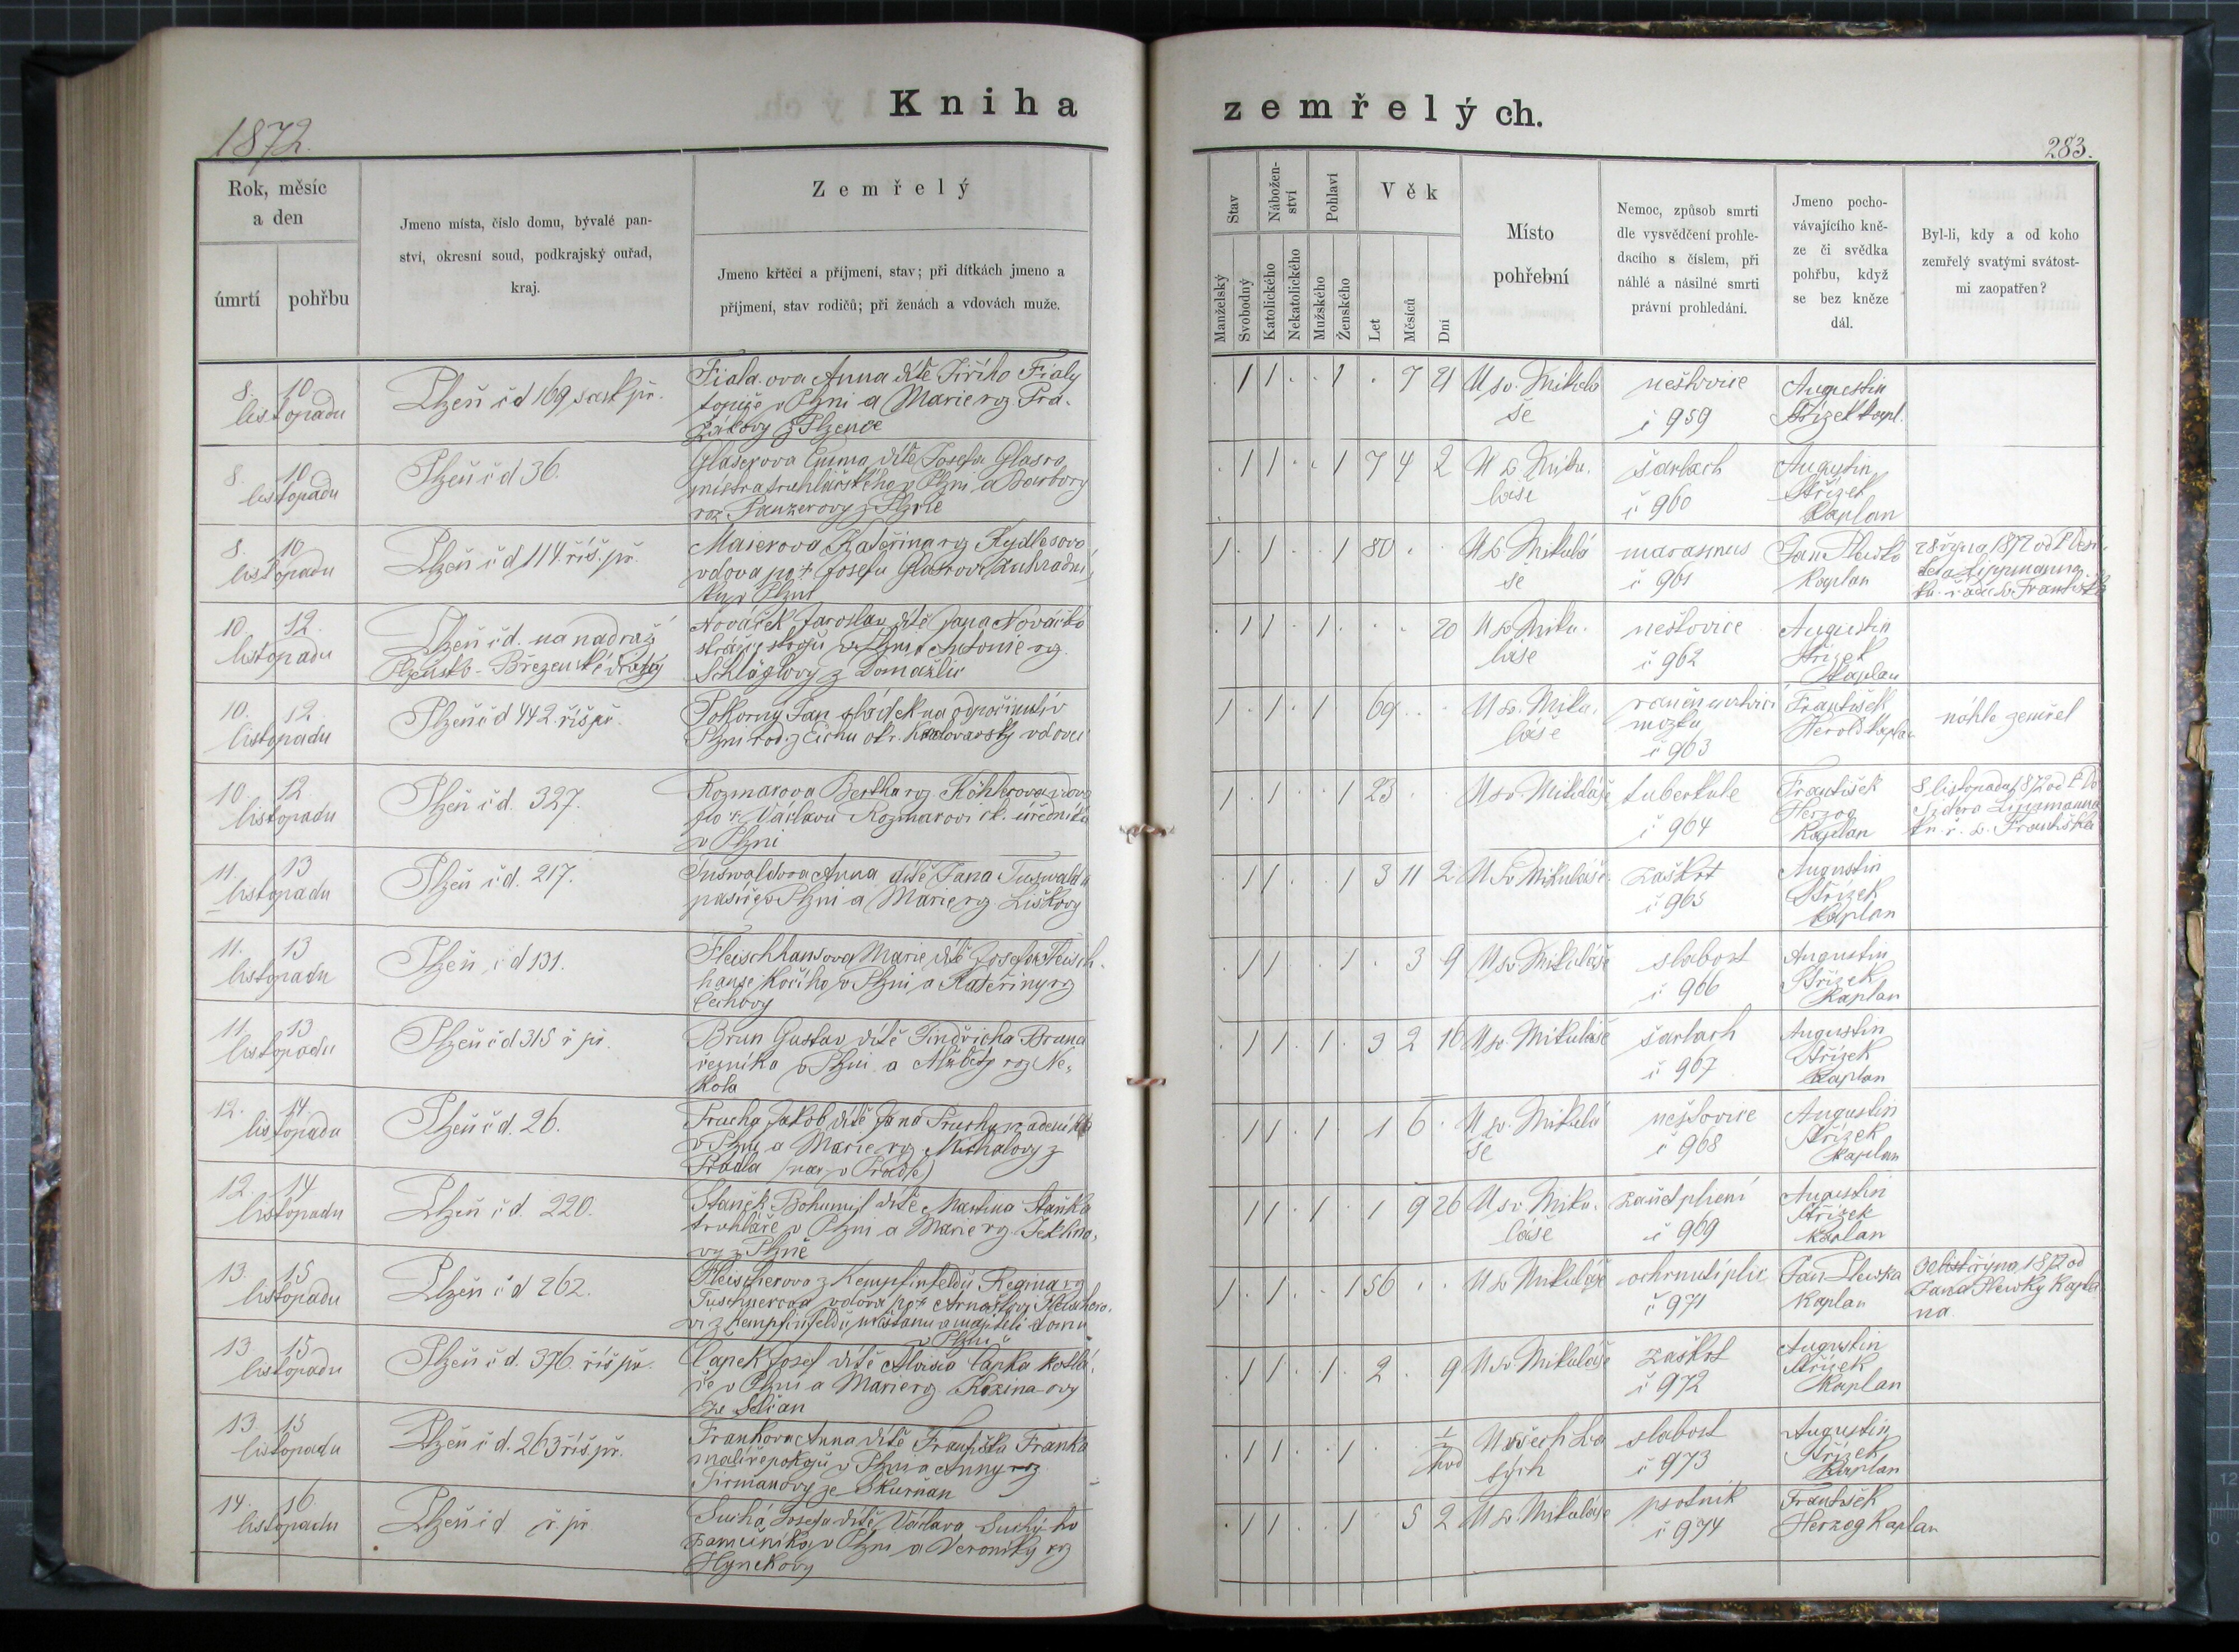 1872.
Kniha
zemřelých.
283.
Rok, měsíc
a den
úmrtí
pohřbu
Jmeno místa, číslo domu, bývalé pan-
ství, okresní soud, podkrajský ouřad,
kraj.
Zemřelý
Jmeno křtěcí a příjmení, stav; při dítkách jmeno a
příjmení, stav rodičů; při ženách a vdovách muže.
Stav
Nábožen-
ství
Pohlaví
Věk
Manželský
Svobodný
Katolického
Nekatolického
Mužského
Ženského
Let
Měsíců
Dní
Místo
pohřební
Nemoc, způsob smrti
dle vysvědčení prohle-
dacího s číslem, při
náhlé a násilné smrti
právní prohledání.
Jmeno pocho-
vávajícího kně-
ze či svědka
pohřbu, když
se bez kněze
dál.
Byl-li, kdy a od koho
zemřelý svatými svátost-
mi zaopatřen?
8. 10
listopadu
Plzeň čd 169
Fiala ova Anna dítě Jiřího Fialy
topiče v Plzni a Marie rz. Pra-
žákovy z Plzence
. 1 1 . . 1 . 7 21
U sv. Mikulá
še
neštovice
č 959
Augustin
Střízek kapl.
8. 10
listopadu
Plzeň čd 36.
Glaserova Emma dítě Josefa Glasra
mistra truhlářského v Plzni a Barbory
roz. Panzerovy z Plzně
. 1 1 . . 1 7 4 2
U sv Miku-
láše
šarlach
č 960
Augustin
Střízek
Kaplan
8. 10
listopadu
Plzeň čd 114. říš. př.
Maierova Kateřina rz
vdova po † Josefu
v Plzni
1 . 1 . . 1 80 . .
U sv Mikulá
še
marasmus
č 961
Jan
Kaplan
28 října 1872 od P.
Lippmanna
řádu sv. Františka
10. 12.
listopadu
Plzeň čd. na nádraž
Plzeňsko-Březenské dráhy
Nováček Jaroslav dítě Jana Nováčka
strojů v Plzni a Antonie rz.
z Domažlic
. 1 1 . 1 . . . 20
U sv Miku-
láše
neštovice
č 962
Augustin
Střízek
Kaplan
10. 12
listopadu
Plzeň čd 442. říš př.
Pokorny Jan sládek na odpočinutí v
Plzni rod. z okr. vdovec
1 . 1 . 1 . 69 . .
U sv. Miku-
láše
mozku
č 963
František
Herold kaplan
náhle zemřel
10. 12.
listopadu
Plzeň čd. 327.
Rozmarova Bertha rz. Köhlerova vdova
po † Václavu Rozmarovi úředníku
v Plzni
1 . 1 . . 1 23 . .
U sv. Mikuláše
tuberkule
č 964
František
Herzog
Kaplan
8 listopadu 1872 od P.
Lippmanna
kn. ř. sv. Františka
11. 13
listopadu
Plzeň čd. 217.
Anna dítě Jana
v Plzni a Marie rz. Liškovy
. 1 1 . . 1 3 11 2
U sv Mikuláše
záškrt
č 965
Augustin
Střízek
Kaplan
11. 13
listopadu
Plzeň čd 131.
Fleischhansova Marie dítě Josefa Fleisch-
hanse kočího v Plzni a Kateřiny rz
Čechovy
. 1 1 . . 1 . 3 9
U sv. Mikuláše
slabost
č 966
Augustin
Střízek
Kaplan
11. 13
listopadu
Plzeň čd 315 ř př.
Brun Gustav dítě Jindřicha Bruna
řezníka v Plzni a Alžběty rz Ne-
kola
. 1 1 . 1 . 3 2 16
U sv. Mikuláše
šarlach
č 967
Augustin
Střízek
Kaplan
12. 14
listopadu
Plzeň čd. 26.
Prucha Jakob dítě Jana Pruchy nadenníka
v Plzni a Marie rz. Michalovy z
Prádla (nar. v Prádle)
. 1 1 . 1 . 1 6 .
U sv. Mikulá
še
neštovice
č 968
Augustin
Střízek
Kaplan
12. 14
listopadu
Plzeň čd. 220.
Staněk Bohumil dítě Martina Staňka
truhláře v Plzni a Marie rz.
vy z Plzně
. 1 1 . 1 . 1 9 26
U sv. Miku-
láše
zánět plícní
č 969
Augustin
Střízek
kaplan
13. 15
listopadu
Plzeň čd 262.
Fleischerova z Kempfinfeldů Regina rz
Tuschnerova vdova po †
vi z Kempfinfeldů měšťanu a majiteli domu
v Plzni
1 . 1 . . 1 56 . .
U sv Mikuláše
ochrnutí plic
č 971
Jan
Kaplan
října 1872 od
Jana Kapla
na.
13 15
listopadu
Plzeň čd. 376. říš př.
Čapek Josef dítě Aloisa Čapka kotlá-
ře v Plzni a Marie rz. Kozina-ovy
ze Selčan
. 1 1 . 1 . 2 . 9
U sv. Mikuláše
záškrt
č 972
Augustin
Střízek
Kaplan
13. 15
listopadu
Plzeň čd. 263 říš. př.
Frankova Anna dítě Františka Franka
malíře pokojů v Plzni a Anny rz
Tirmanovy ze Skurňan
. 1 1 . . 1 . . ½ hod
U všech sva
tých
slabost
č 973
Augustin
Střízek
Kaplan
14. 16.
listopadu
Plzeň čd ř. př.
Suchá Josefa dítě Václava Suchýho
v Plzni a Veroniky rz
Hynekovy
. 1 1 . . 1 . 5 2
U sv. Mikuláše
psotník
č 974
František
Herzog Kaplan